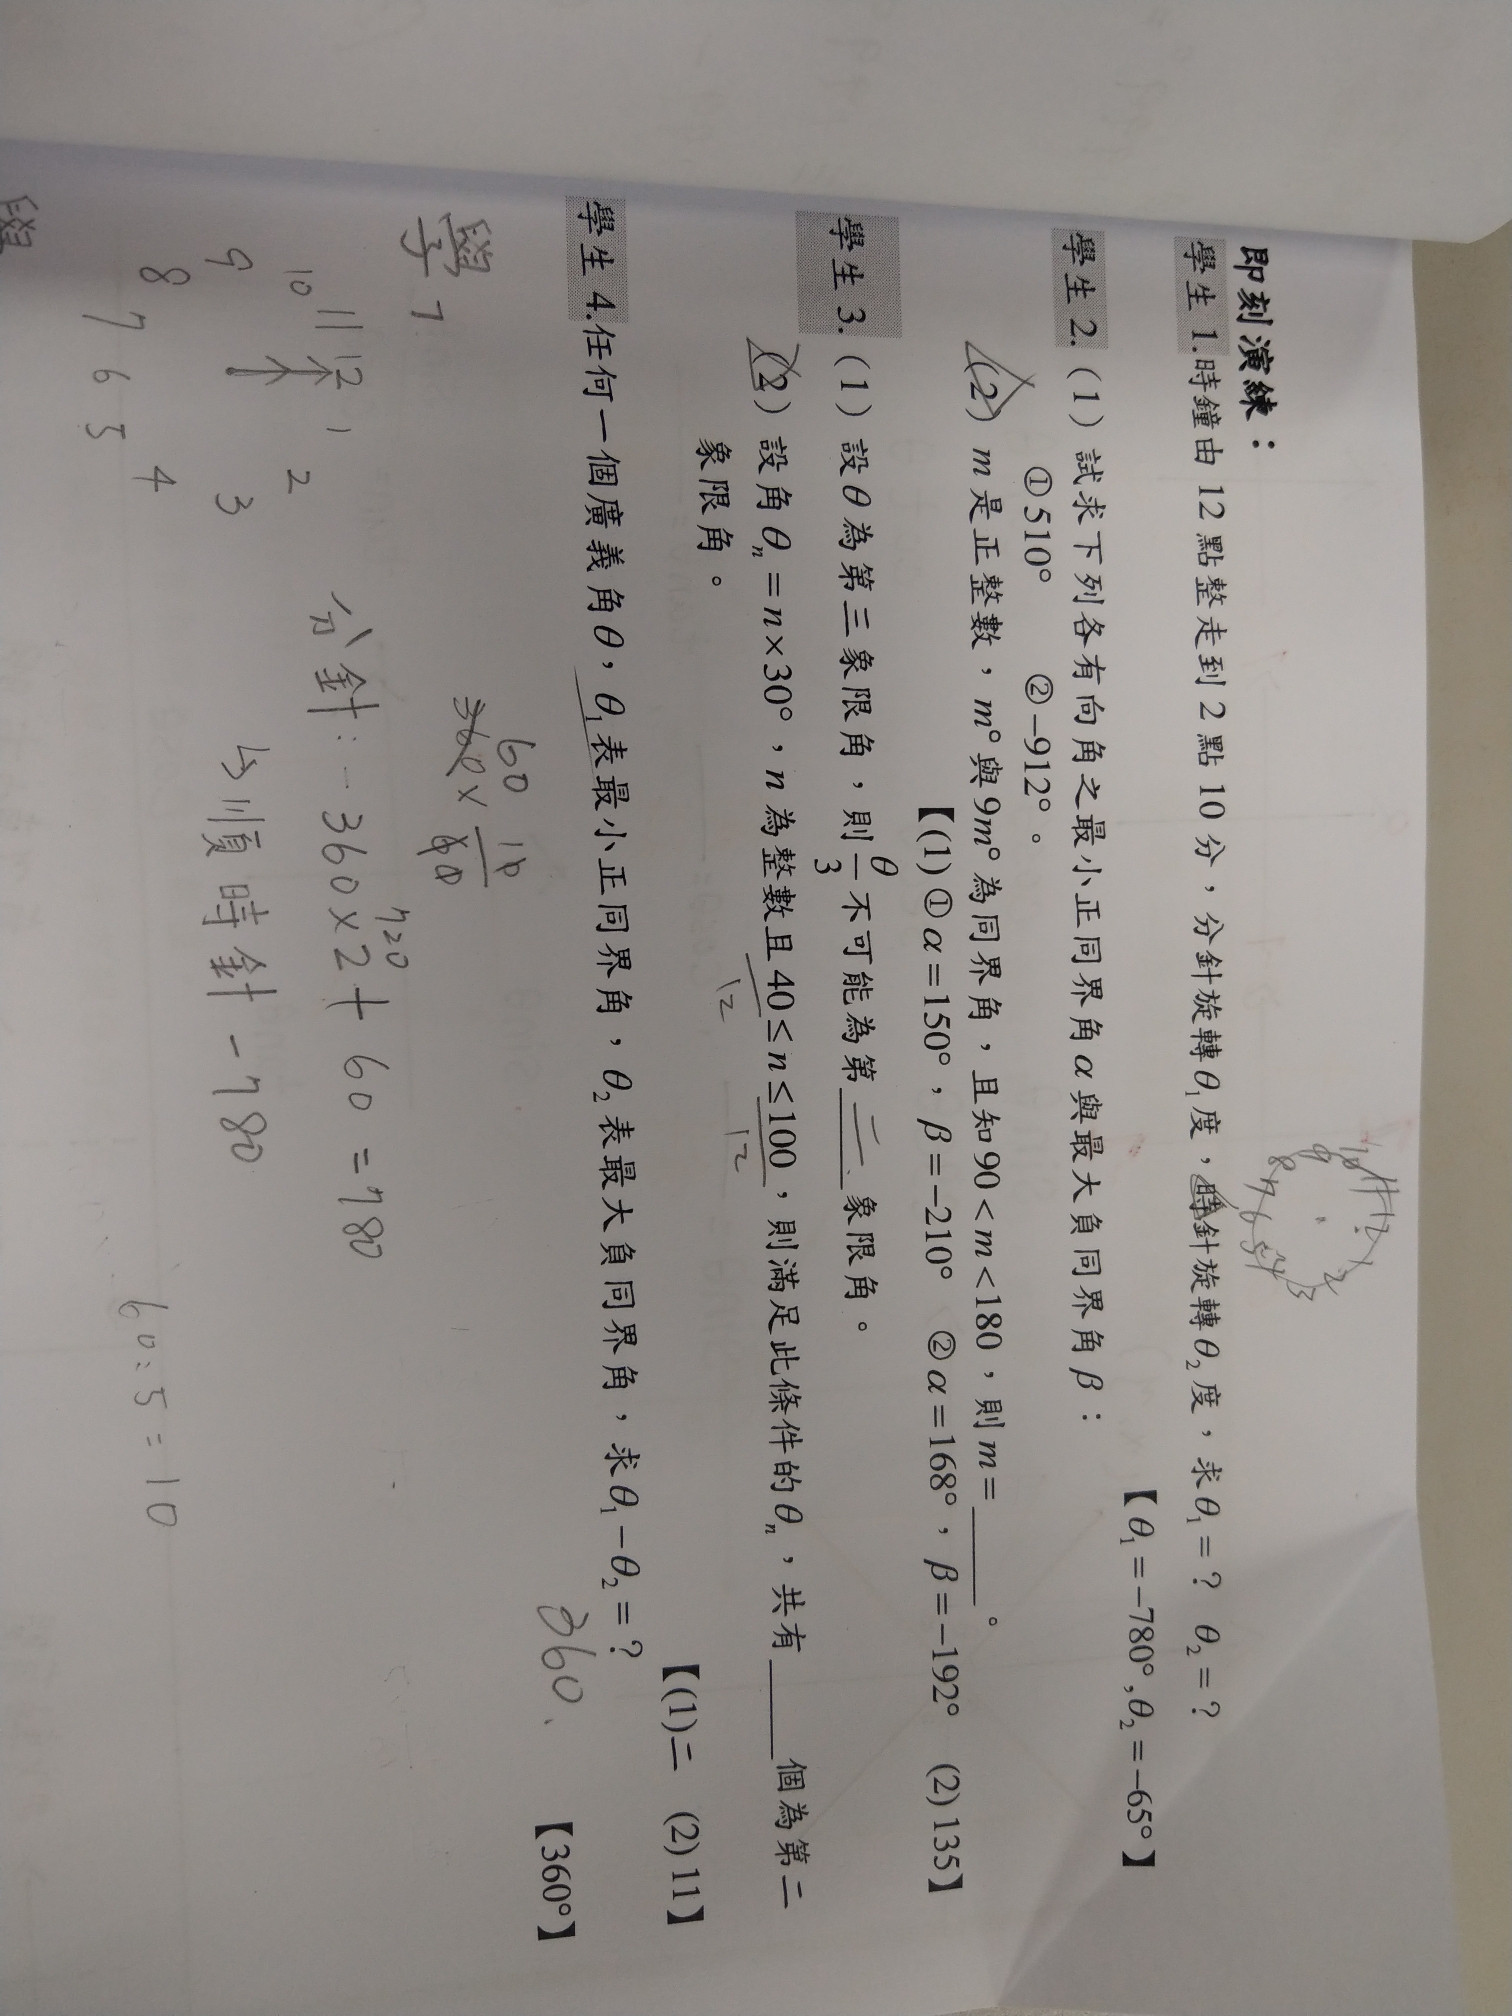 即刻演練：
學生1.時鐘由12點整走到2點10分，分針旋轉θ₁度，時針旋轉θ₂度，求θ₁=？ θ₂=？
【θ₁=−780°,θ₂=−65°】
學生2.（1）試求下列各有向角之最小正同界角α與最大負同界角β：
①510° ②−912°。
（2）m是正整數，m°與9m°為同界角，且知90<m<180，則m=______。
【(1)①α=150°，β=−210° ②α=168°，β=−192° (2)135】
學生3.（1）設θ為第三象限角，則θ/3不可能為第二象限角。
（2）設角θₙ=n×30°，n為整數且40≤n≤100，則滿足此條件的θₙ，共有______個為第二
象限角。
12 12
【(1)二 (2)11】
學生4.任何一個廣義角θ，θ₁表最小正同界角，θ₂表最大負同界角，求θ₁−θ₂=？
360.
【360°】
學
11 12 1
10 2
9 3
8 4
7 6 5
60
360×10/60
720
分針：−360×2+60=780
順時針−780
60:5=10